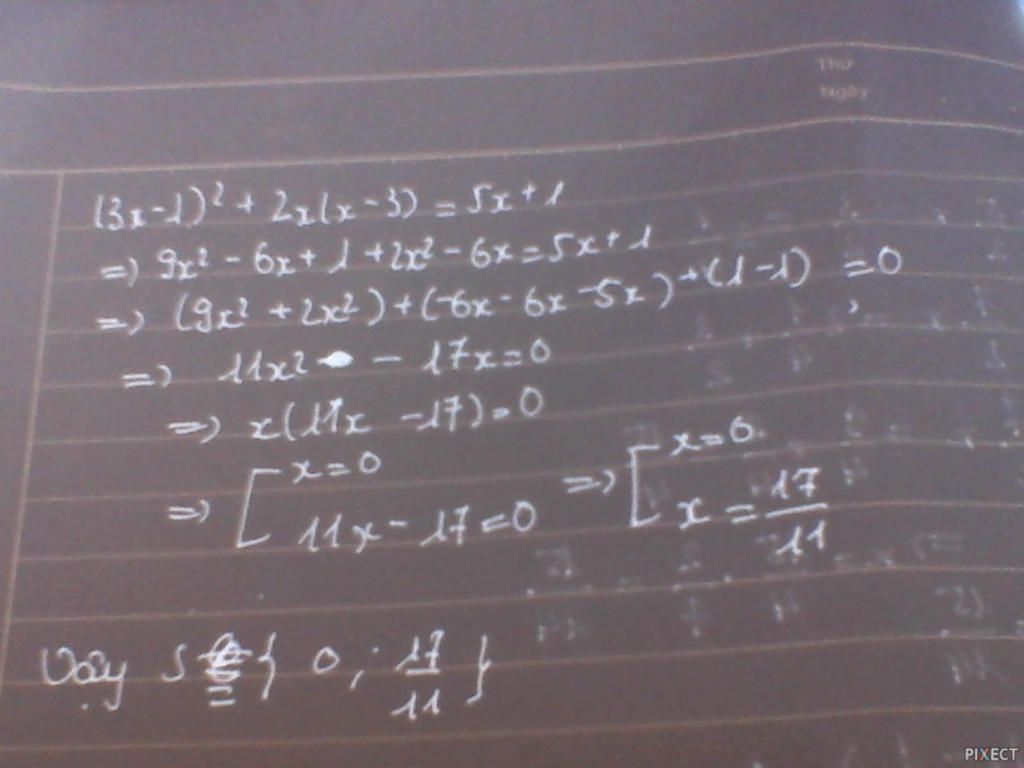 Thứ
Ngày
(3x-1)² + 2x(x-3) = 5x+1
=> 9x² - 6x + 1 + 2x² - 6x = 5x + 1
=> (9x² + 2x²) + (-6x - 6x - 5x) + (1-1) = 0
=> 11x² - 17x = 0
=> x(11x - 17) = 0
=> [ x = 0 => [ x = 0
11x - 17 = 0 x = 17/11
Vậy S = { 0 ; 17/11 }
PIXECT